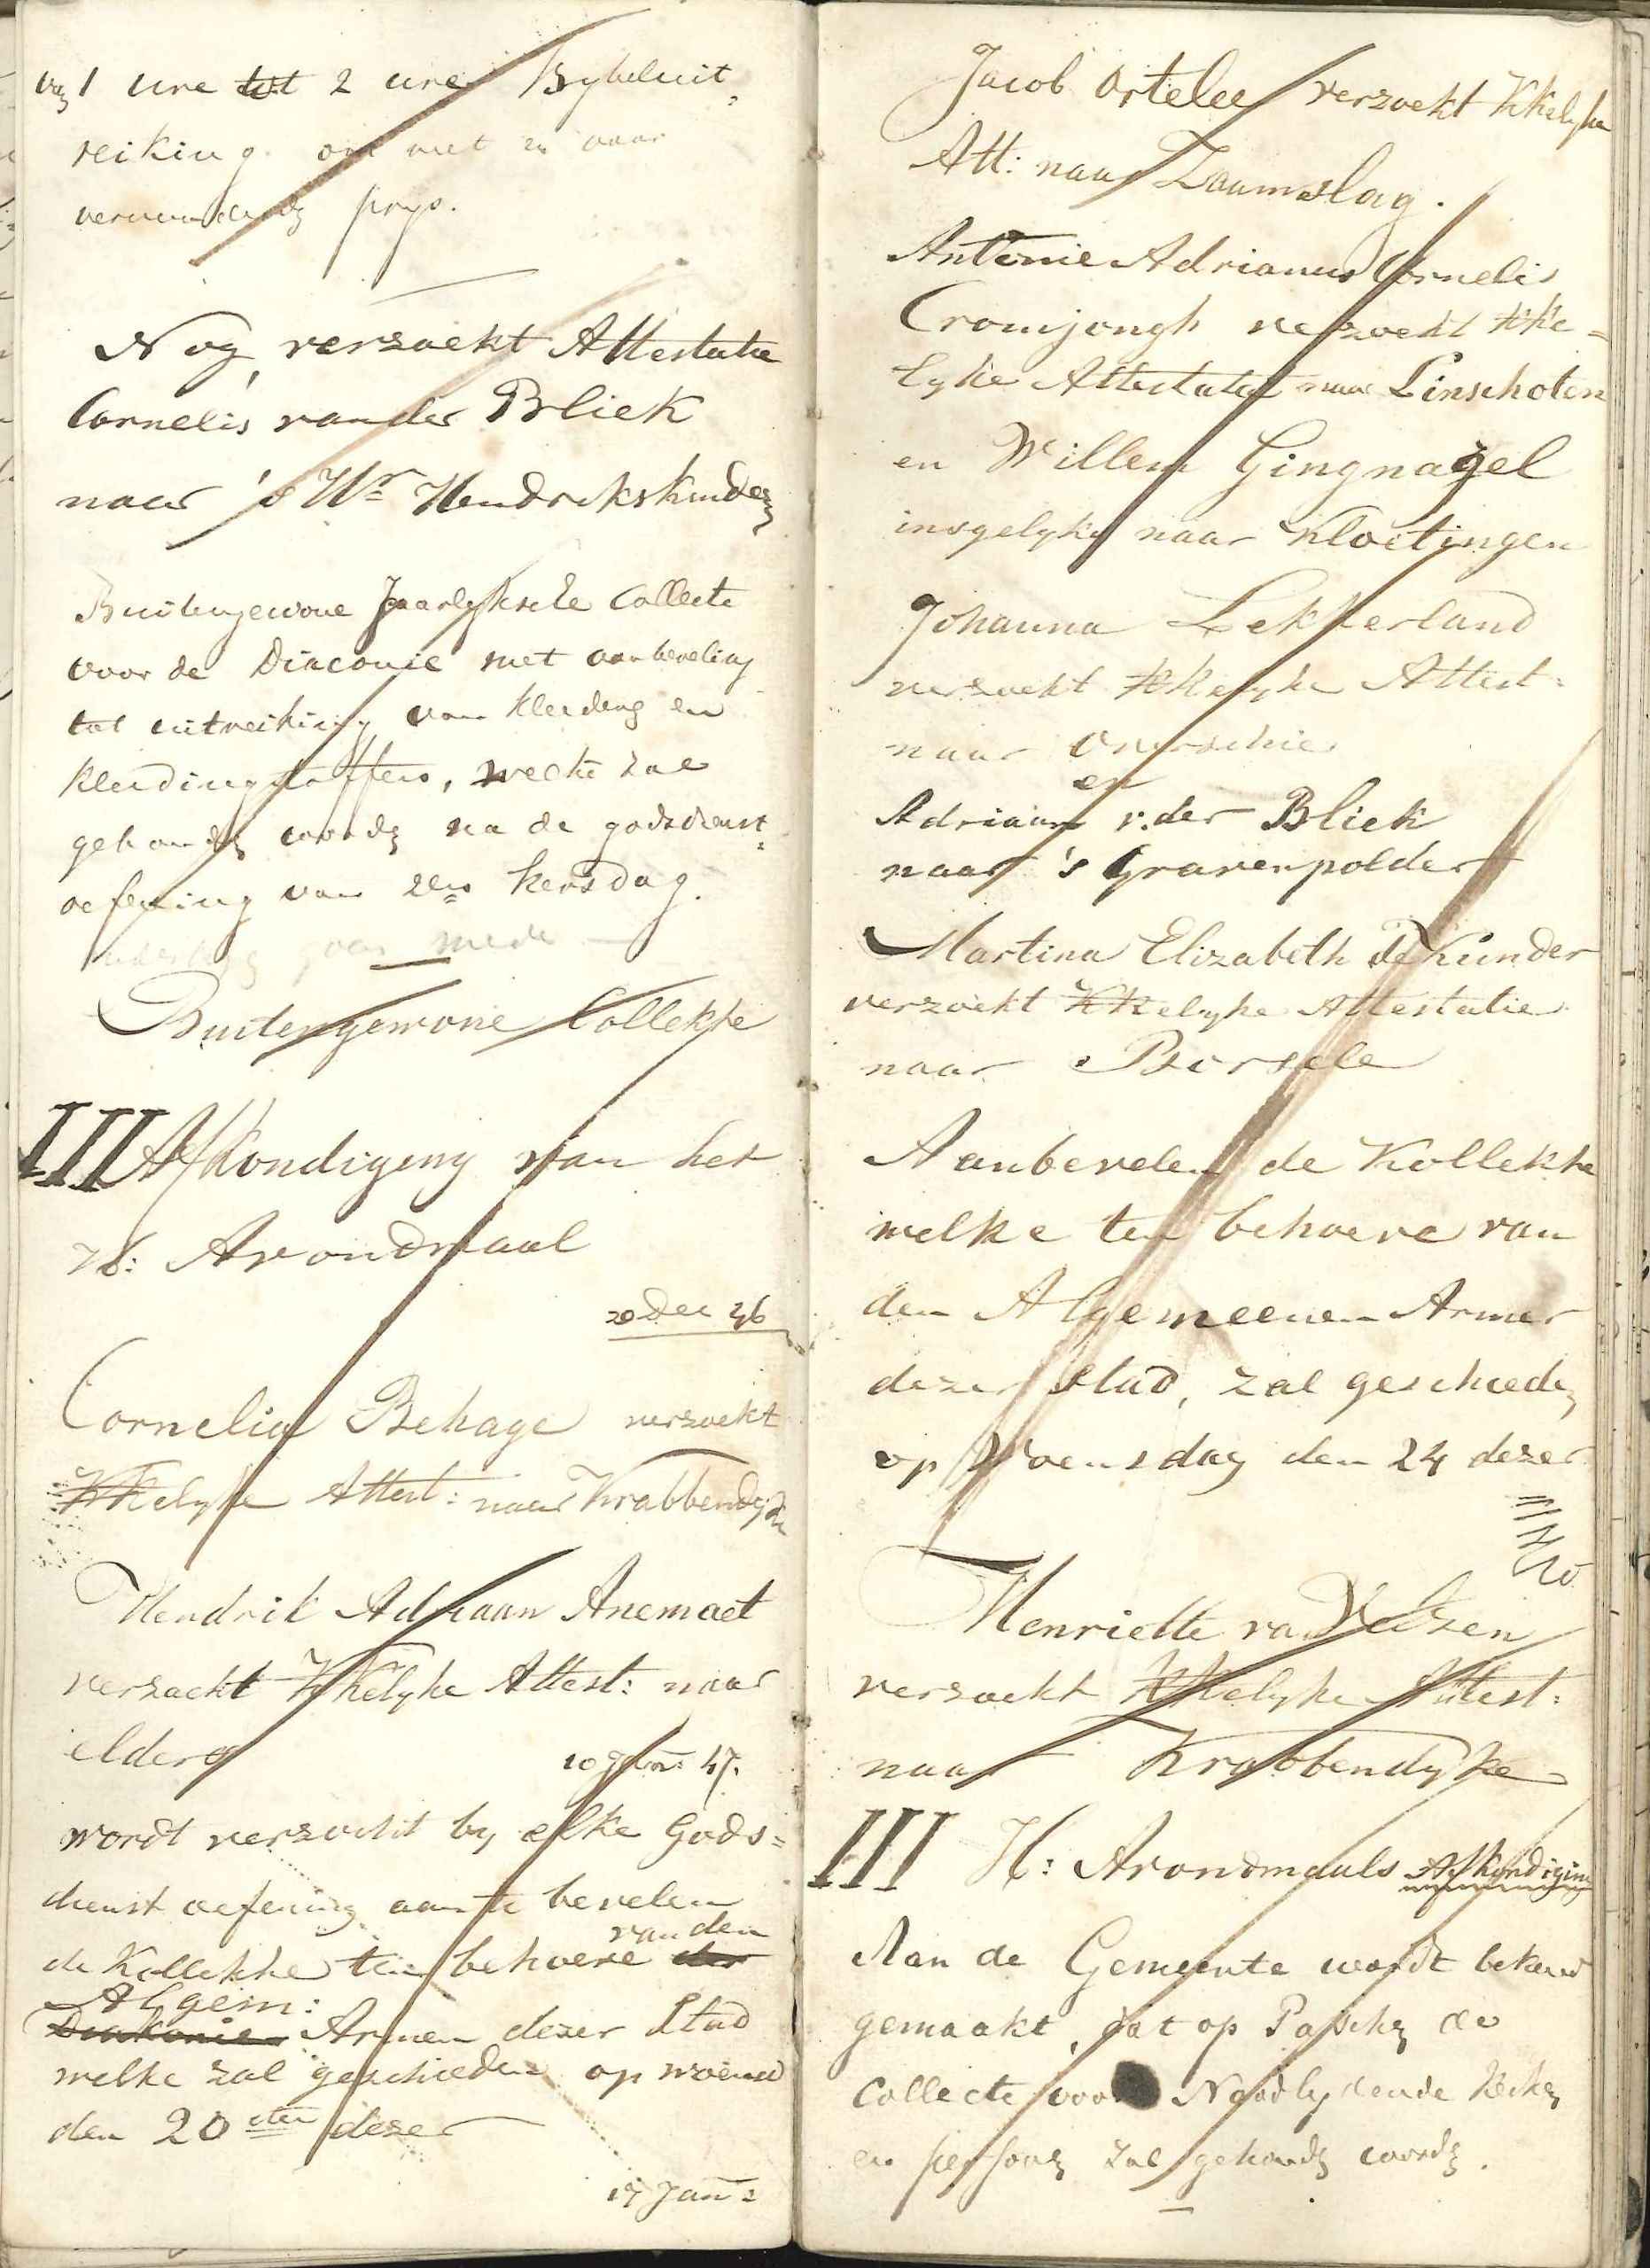 van 1 ure tot 2 uren Bybeluit,
reiking. om niet en voor
verminderden prijs.
Nog verzoekt Attestatie
Cornelis van der Bliek
naar 's Hr Hendrikskinderen
Buitengewone Jaarlyksche Collecte
voor de Diaconie met aanbeveling
tot uitreiking van kleeding en
kleedingstoffen, welke zal
gehouden worden na de godsdienst,
oefening van 2en kersdag.
mede
Buitengewone Collekte
III Afkondiging van het
H: Avondmaal
20 Dec 46
Cornelia Behage verzoekt
KKelyke Attest: naar Krabbendyke
Hendrik Adriaan Anemaet
verzoekt KKelyke Attest: naar
elders
10 Jan: 47.
wordt verzocht by elke Gods=
dienst oefening aan te bevelen
de Kollekte ten behoeve der van den
Algem:
Diakonie Armen dezer Stad
welke zal geschieden op woensd
den 20sten dezer
17 Jan:
Jacob Ortelee verzoekt KKelyke
Att: naar Zaamslag.
Antonie Adrianus Cornelis
Cromjongh verzoekt KKe=
lyke Attestatie naar Linschoten
en Willem Gingnagel
insgelyks naar Kloetingen
Johanna Lekkerland
verzoekt KKelyke Attest:
naar Overschie
en
Adriaan v. der Bliek
naar 's Gravenpolder
Martina Elizabeth de Kunder
verzoekt KKelyke Attestatie
naar Borsele
Aanbevelen de Kollekte
welke ten behoeve van
den Algemeenen Armen
dezer stad, zal geschieden
op Woensdag den 24 dezer
Henriette van Velzen
verzoekt KKelyke Attest:
naar Krabbendyke
III H: Avondmaals Afkondiging
Aan de Gemeente wordt bekend
gemaakt, dat op Paschen de
Collecte voor Noodlydende Kerken
en persoonen zal gehouden worden.